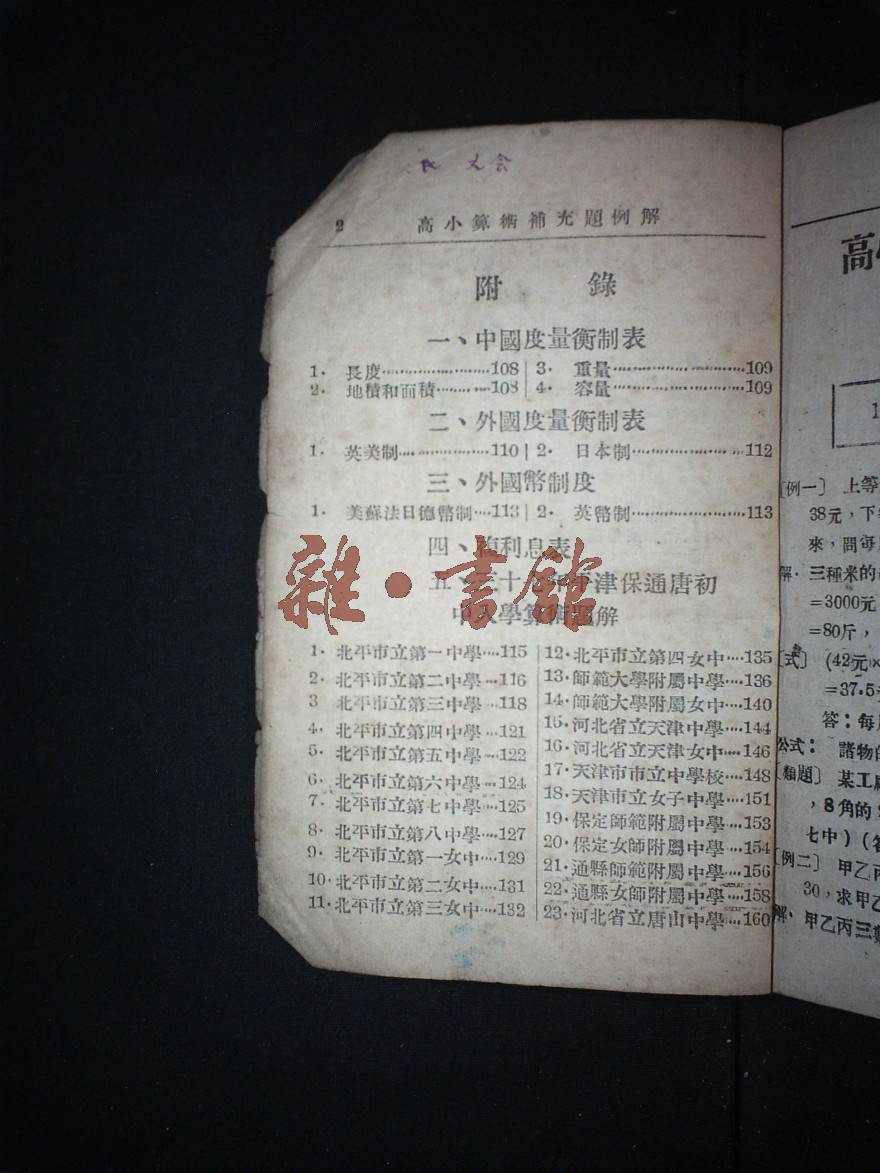 2 高小算術補充題例解
附 錄
一、中國度量衡制表
1. 長度……108 3. 重量……109
2. 地積和面積……108 4. 容量……109
二、外國度量衡制表
1. 英美制……110 2. 日本制……112
三、外國幣制度
1. 美蘇法日德幣制…113 2. 英幣制……113
四、複利息表
五、三十七年平津保通唐初
中入學算術題解
1. 北平市立第一中學…115
2. 北平市立第二中學…116
3 北平市立第三中學…118
4. 北平市立第四中學…121
5. 北平市立第五中學…122
6. 北平市立第六中學…124
7. 北平市立第七中學…125
8. 北平市立第八中學…127
9. 北平市立第一女中…129
10.北平市立第二女中…131
11.北平市立第三女中…132
12.北平市立第四女中…135
13.師範大學附屬中學…136
14.師範大學附屬女中…140
15.河北省立天津中學…144
16.河北省立天津女中…146
17.天津市市立中學校…148
18.天津市立女子中學…151
19.保定師範附屬中學…153
20.保定女師附屬中學…154
21.通縣師範附屬中學…156
22.通縣女師附屬中學…158
23.河北省立唐山中學…160
雜·書館
高
1
〔例一〕 上等
38元，下
來，問每
解．三種米的
=3000元
=80斤，
〔式〕 (42元×
=37.5
答：每
公式： 諸物的
〔類題〕 某工
，8角的
七中）（答
〔例二〕 甲乙丙
30，求甲乙
解．甲乙丙三數